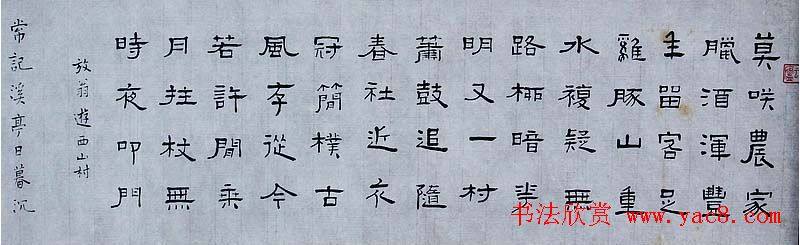 莫咲農家
臘酒渾豐
年留客足
雞豚山重
水複疑無
路柳暗華
明又一村
簫鼓追隨
春社近衣
冠簡樸古
風存從今
若許閒乘
月拄杖無
時夜叩門
放翁遊西山村
常記溪亭日暮沉
书法欣赏 www.yac8.com